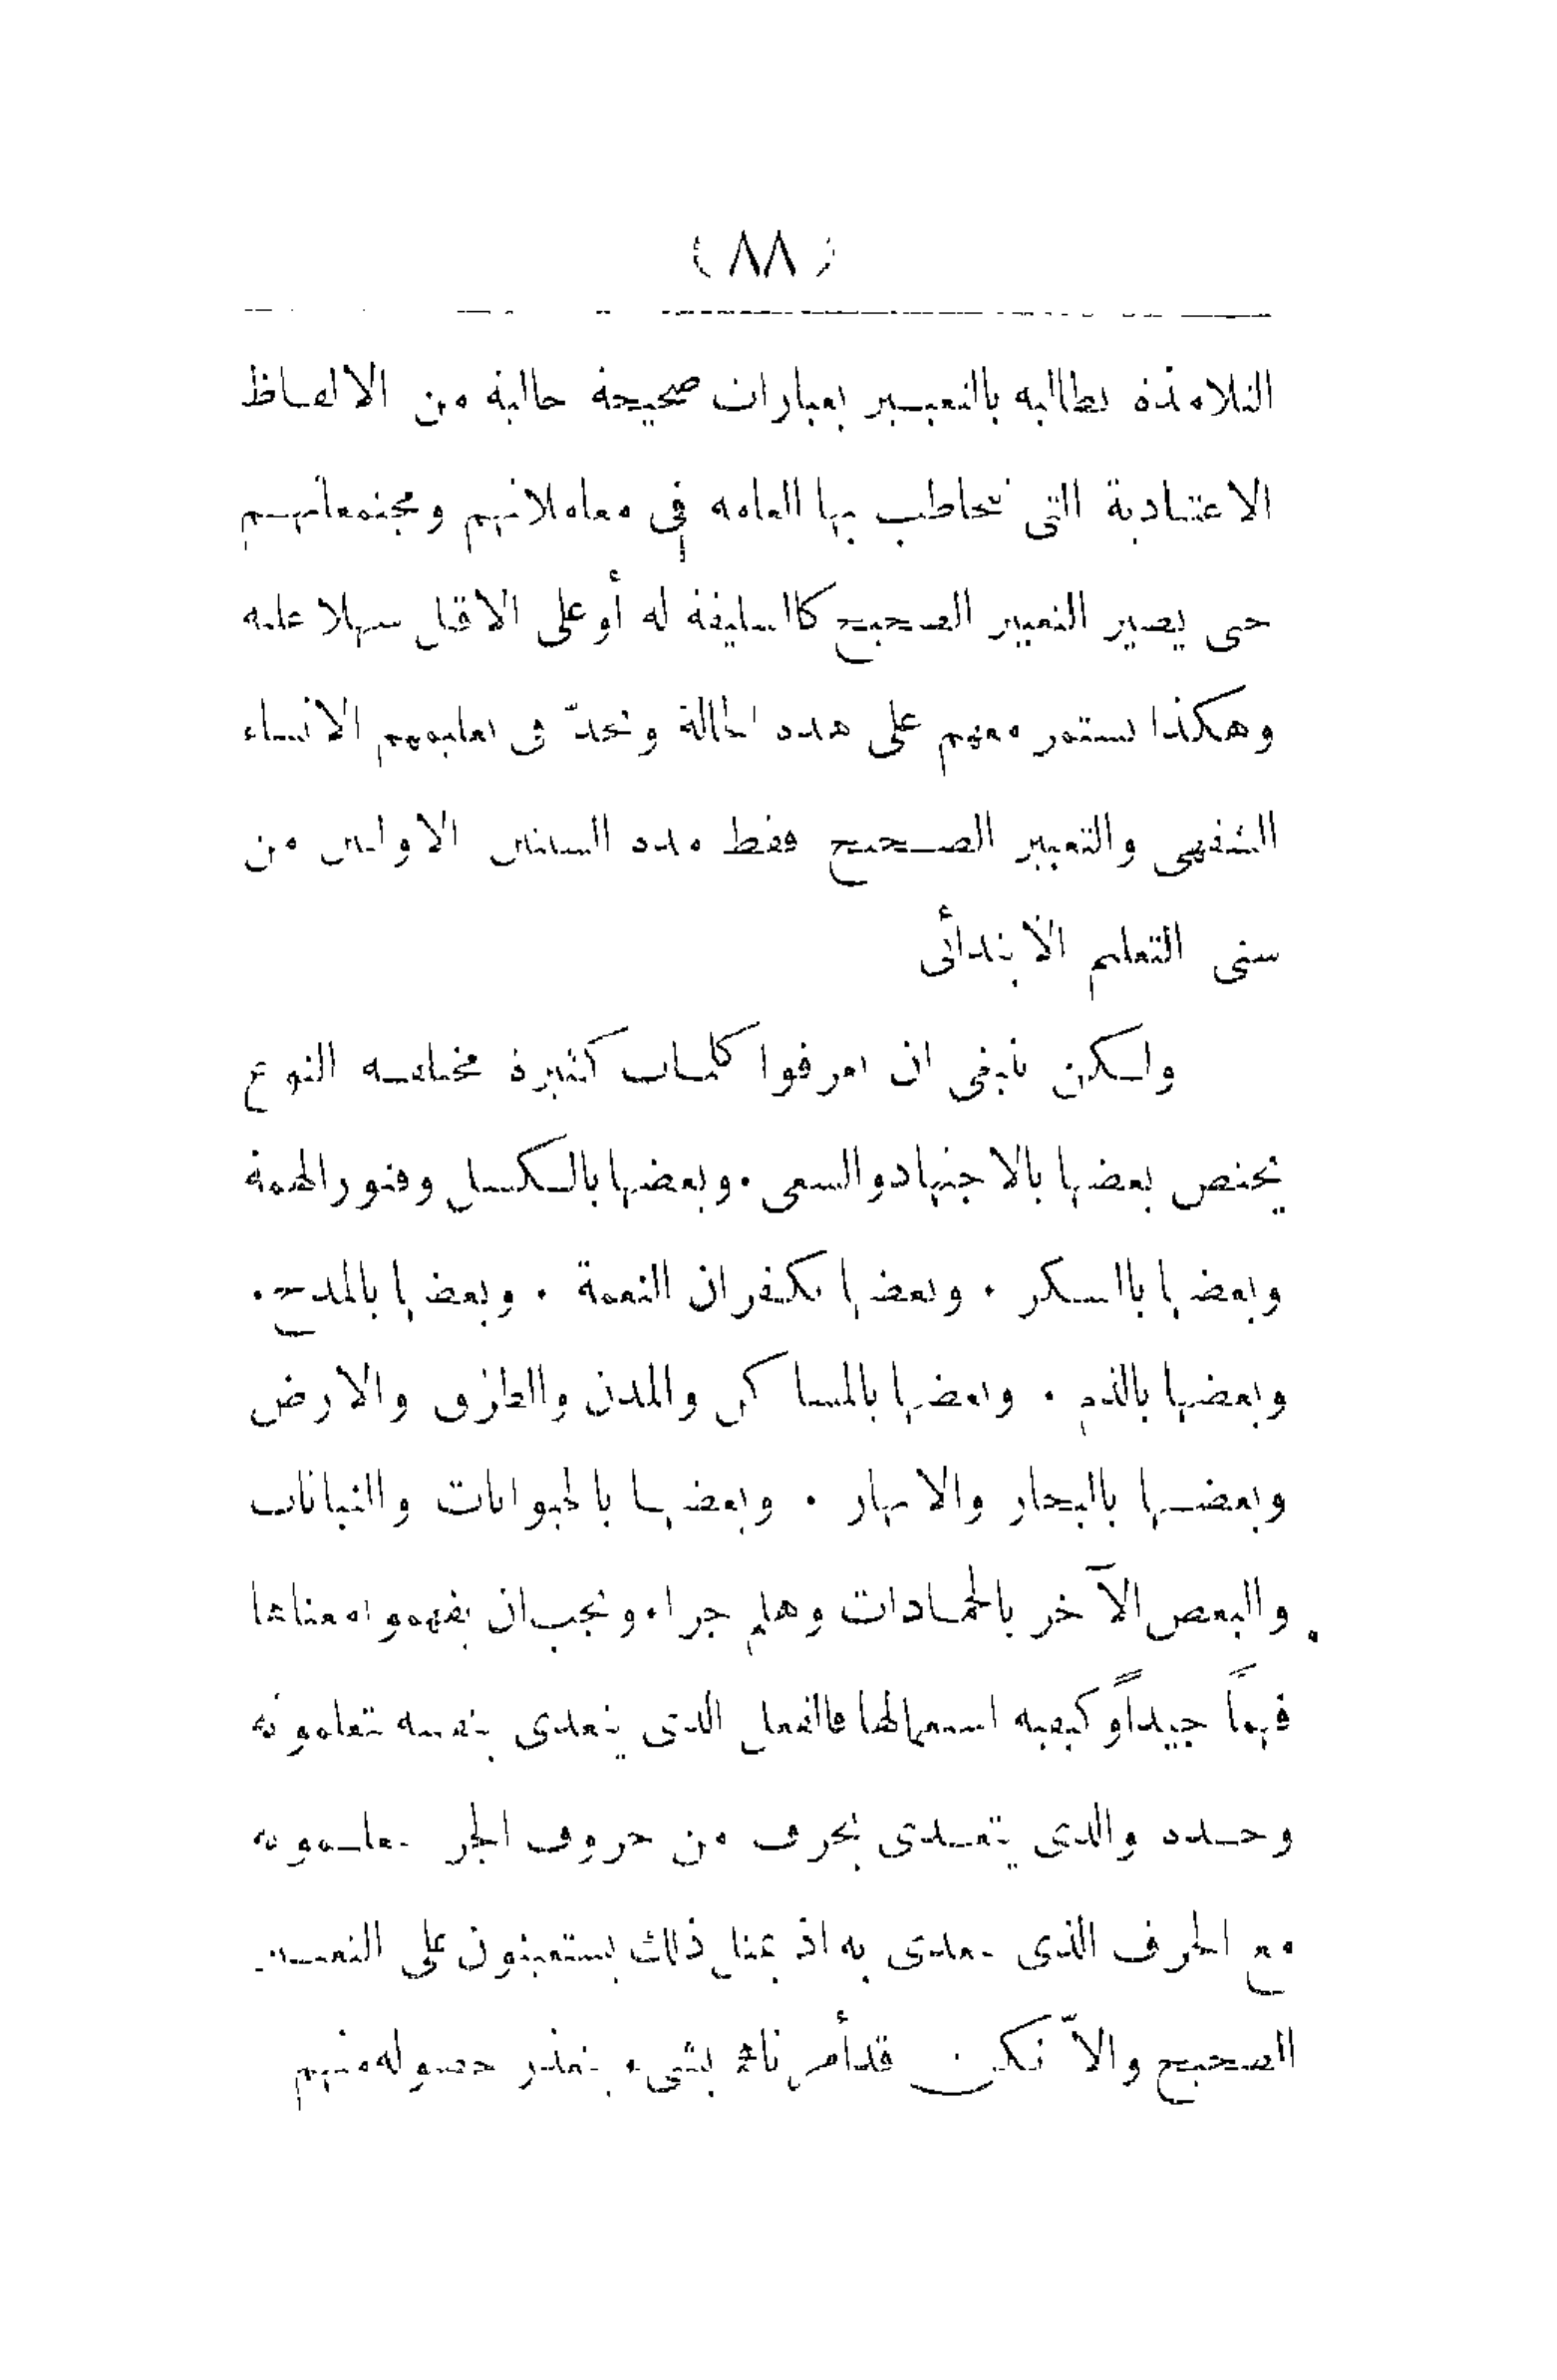 ( ٨٨ )
التلامذة نطالبه بالتعبير بعبارات صحيحة خالية من الالفاظ
الاعتيادية التى تخاطب بها العامة فى معاملاتهم ومجتمعاتهم
حتى يصير التعبير الصحيح كالسليقة له أو على الاقل سهلا عليه
وهكذا نستمر معهم على هذه الحالة ونجدّ فى تعليمهم الانشاء
الشفهى والتعبير الصحيح فقط مدة السنتين الاوليين من
سنى التعليم الابتدائى
ولكن ينبغى ان يعرفوا كلمات كثيرة مختلفة النوع
يختص بعضها بالاجتهاد والسعى . وبعضها بالكسل وفتور الهمة
وبعضها بالشكر . وبعضها بكفران النعمة . وبعضها بالمدح .
وبعضها بالذم . وبعضها بالمساكن والمدن والطرق والارض
وبعضها بالبحار والانهار . وبعضها بالحيوانات والنباتات
والبعض الآخر بالجمادات وهلم جرا . ويجب ان يفهموا معناها
فهماً جيداً وكيفية استعمالها فالفعل الذى يتعدى بنفسه يتعلمونه
وحده والذى يتعدى بحرف من حروف الجر يتعلمونه
مع الحرف الذى يتعدى به اذ بمثل ذلك يستعينون على التعبير
الصحيح والاّ نكن قد أمرناهم بشىء يتعذر حصوله منهم